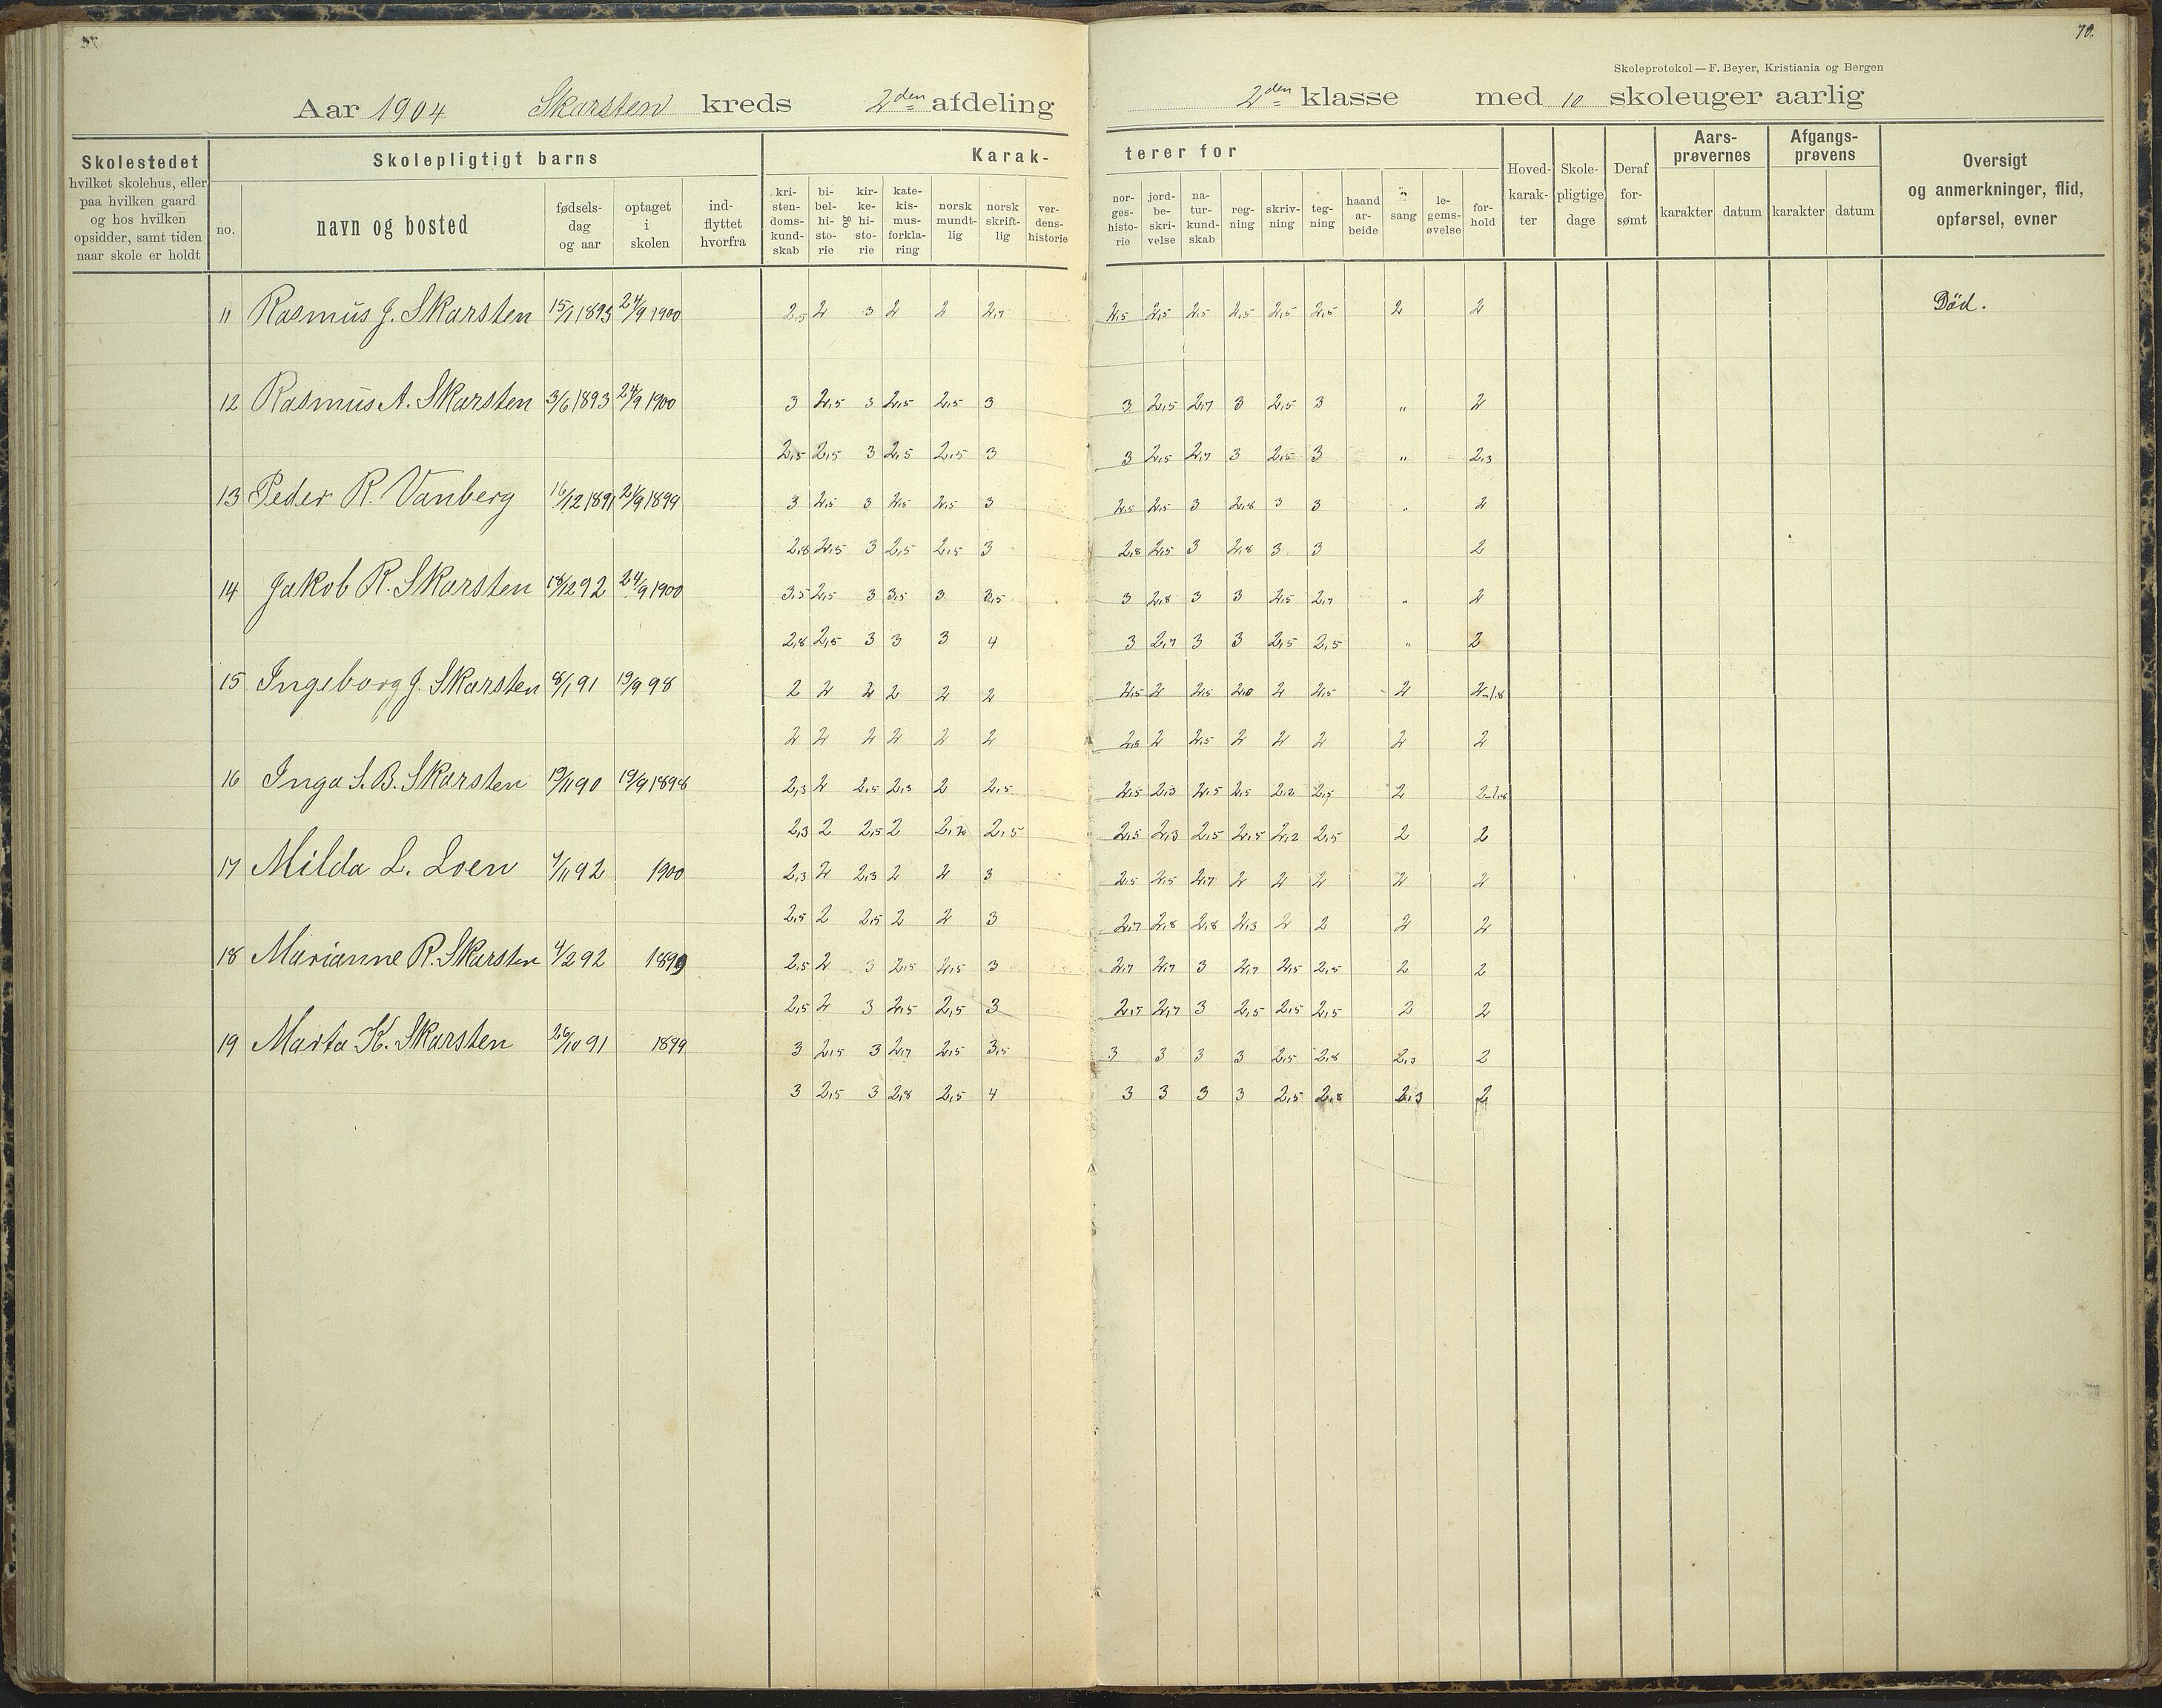 70.
Skoleprotokol — F. Beyer, Kristiania og Bergen
Aar 1904 Skarsten kreds 2den afdeling 2den klasse med 10 skoleuger aarlig
Skolestedet hvilket skolehus, eller paa hvilken gaard og hos hvilken opsidder, samt tiden naar skole er holdt
Skolepligtigt barns
no. navn og bosted fødsels-dag og aar optaget i skolen ind-flyttet hvorfra
Karak-terer for
kri-sten-doms-kund-skab bi-bel-hi-sto-rie og kir-ke-hi-sto-rie kate-kis-mus-forkla-ring norsk mundt-lig norsk skrift-lig ver-dens-historie
nor-ges-histo-rie jord-be-skri-velse na-tur-kund-skab reg-ning skriv-ning teg-ning haand ar-beide sang le-gems-øvelse for-hold
Hoved-karak-ter Skole-pligtige dage Deraf for-sømt
Aars-prøvernes karakter datum
Afgangs-prøvens karakter datum
Oversigt og anmerkninger, flid, opførsel, evner
11 Rasmus J. Skarsten 15/1 1893 24/9 1900 2,5 2 3 2 2 2,7 2,5 2,5 2,5 2,5 2,5 2,5 2 2 Død.
12 Rasmus A. Skarsten 3/6 1893 24/9 1900 3 2,5 3 2,5 2,5 3 3 2,5 2,7 3 2,5 3 " 2
2,5 2,5 3 2,5 2,5 3 3 2,5 2,7 3 2,5 3 " 2,3
13 Peder R. Vanberg 16/12 1891 21/9 1899 3 2,5 3 2,5 2,5 3 2,5 2,5 3 2,8 3 3 " 2
2,8 2,5 3 2,5 2,5 3 2,8 2,5 3 2,8 3 3 2
14 Jakob R. Skarsten 18/12 92 24/9 1900 3,5 2,5 3 3,5 3 3,5 3 2,8 3 3 2,5 2,7 " 2
2,8 2,5 3 3 3 4 3 2,7 3 3 2,5 2,5 " 2
15 Ingeborg J. Skarsten 8/1 91 19/9 98 2 2 2 2 2 2 2,5 2 2,5 2,0 2 2,5 2 2-1,8
2 2 2 2 2 2 2,5 2 2,5 2 2 2 2 2
16 Inga S. B. Skarsten 19/11 90 19/9 1898 2,3 2 2,5 2,3 2 2,5 2,5 2,3 2,5 2,5 2,2 2,5 2 2-1,8
2,3 2 2,5 2 2,5 2,5 2,3 2,5 2,5 2,2 2,5 2 2
17 Milda L. Loen 4/11 92 1900 2,3 2 2,3 2 2 3 2,5 2,5 2,7 2 2 2 2 2
2,5 2 2,5 2 2 3 2,7 2,8 2,8 2,3 2 2 2 2
18 Marianne R. Skarsten 4/2 92 1899 2,5 2 3 2,5 2,5 3 2,7 2,7 3 2,7 2,5 2,5 2 2
2,5 2 3 2,5 2,5 3 2,7 2,7 3 2,5 2,5 2,5 2 2
19 Marta K. Skarsten 26/10 91 1899 3 2,5 3 2,7 2,5 3,5 3 3 3 3 2,5 2,8 2,3 2
3 2,5 3 2,8 2,5 4 3 3 3 3 2,5 2,8 2,3 2